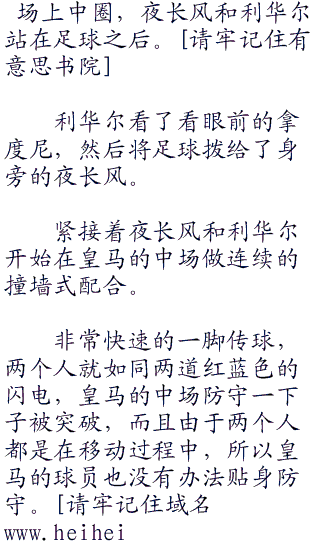 场上中圈，夜长风和利华尔
站在足球之后。[请牢记住有
意思书院]
利华尔看了看眼前的拿
度尼，然后将足球拨给了身
旁的夜长风。
紧接着夜长风和利华尔
开始在皇马的中场做连续的
撞墙式配合。
非常快速的一脚传球，
两个人就如同两道红蓝色的
闪电，皇马的中场防守一下
子被突破，而且由于两个人
都是在移动过程中，所以皇
马的球员也没有办法贴身防
守。[请牢记住域名
www.heihei